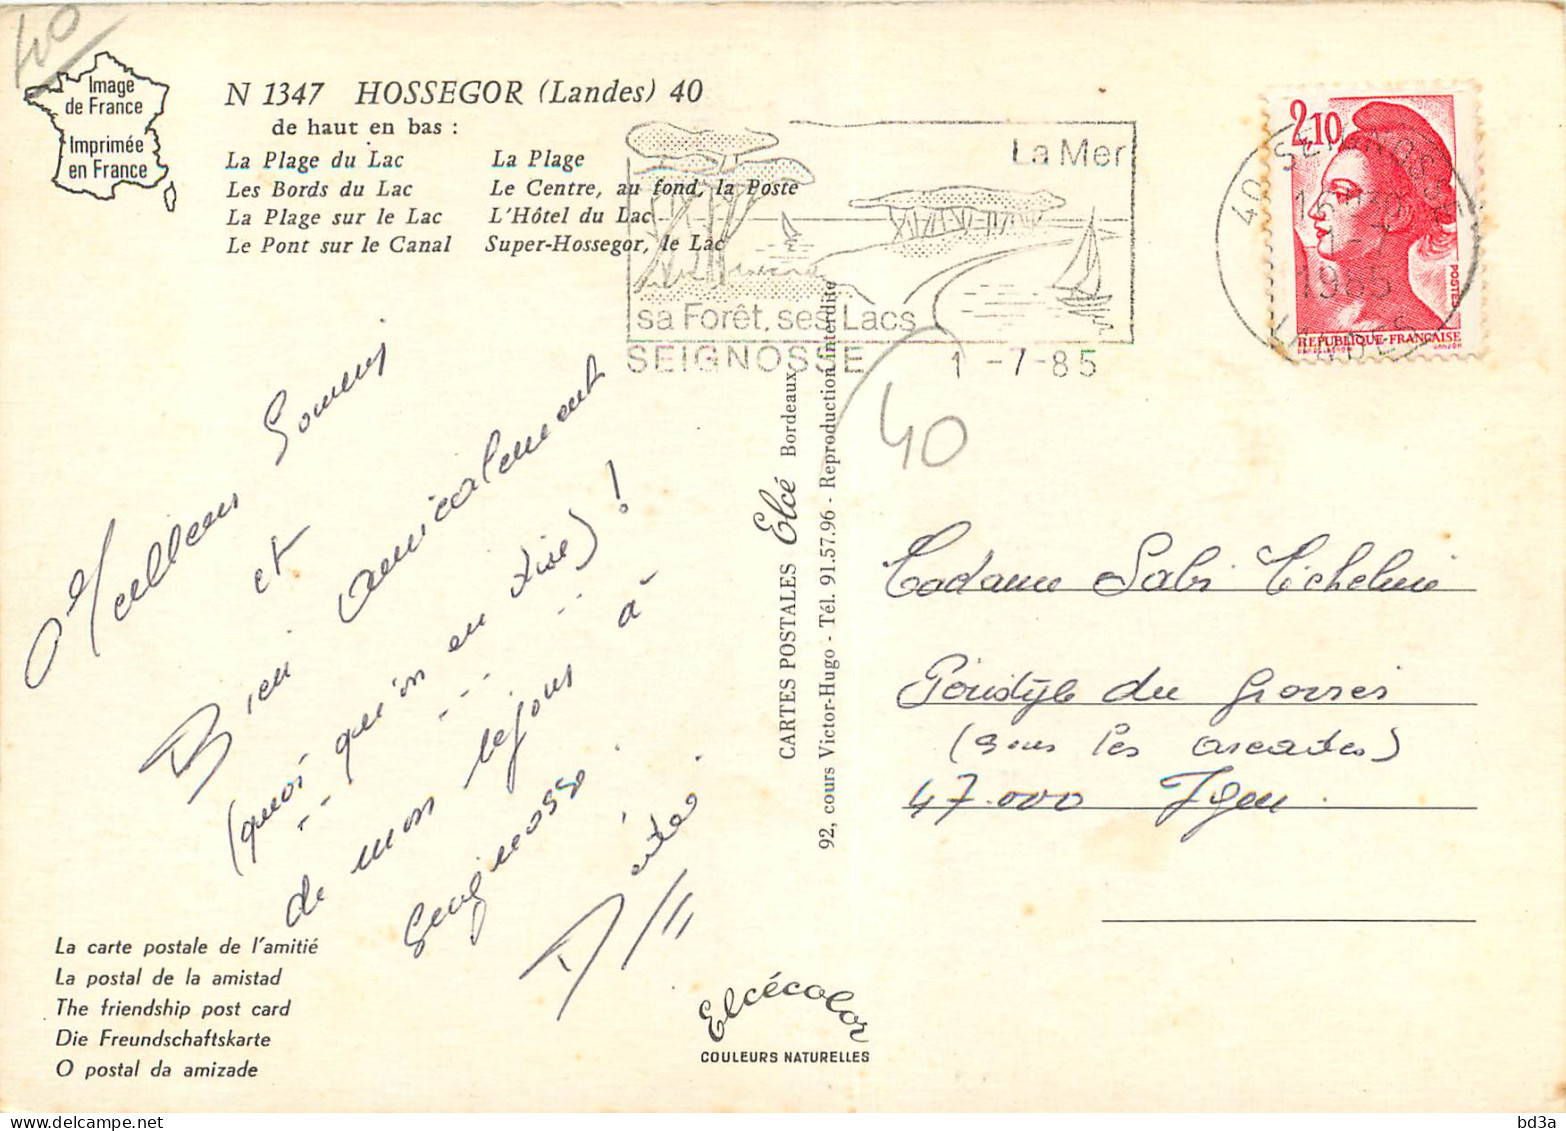 40
Image
de France
Imprimée
en France
N 1347 HOSSEGOR (Landes) 40
de haut en bas :
La Plage du Lac La Plage
Les Bords du Lac Le Centre, au fond, la Poste
La Plage sur le Lac L'Hôtel du Lac
Le Pont sur le Canal Super-Hossegor, le Lac
La Mer
sa Forêt, ses Lacs
SEIGNOSSE 1 -7-85
2,10
POSTES
REPUBLIQUE-FRANÇAISE
40 SEIGNOSSE
1-7
1985
LANDES
Meilleurs Souvenirs
et
Bien amicalement
(quoi qu'on en dise) !
de mon séjour à
Seignosse
CARTES POSTALES Elcé Bordeaux
92, cours Victor-Hugo - Tél. 91.57.96 - Reproduction interdite
40
Madame Sabi Micheline
du
(sous les arcades)
47.000 Agen.
La carte postale de l'amitié
La postal de la amistad
The friendship post card
Die Freundschaftskarte
O postal da amizade
Elcécolor
COULEURS NATURELLES
bd3a